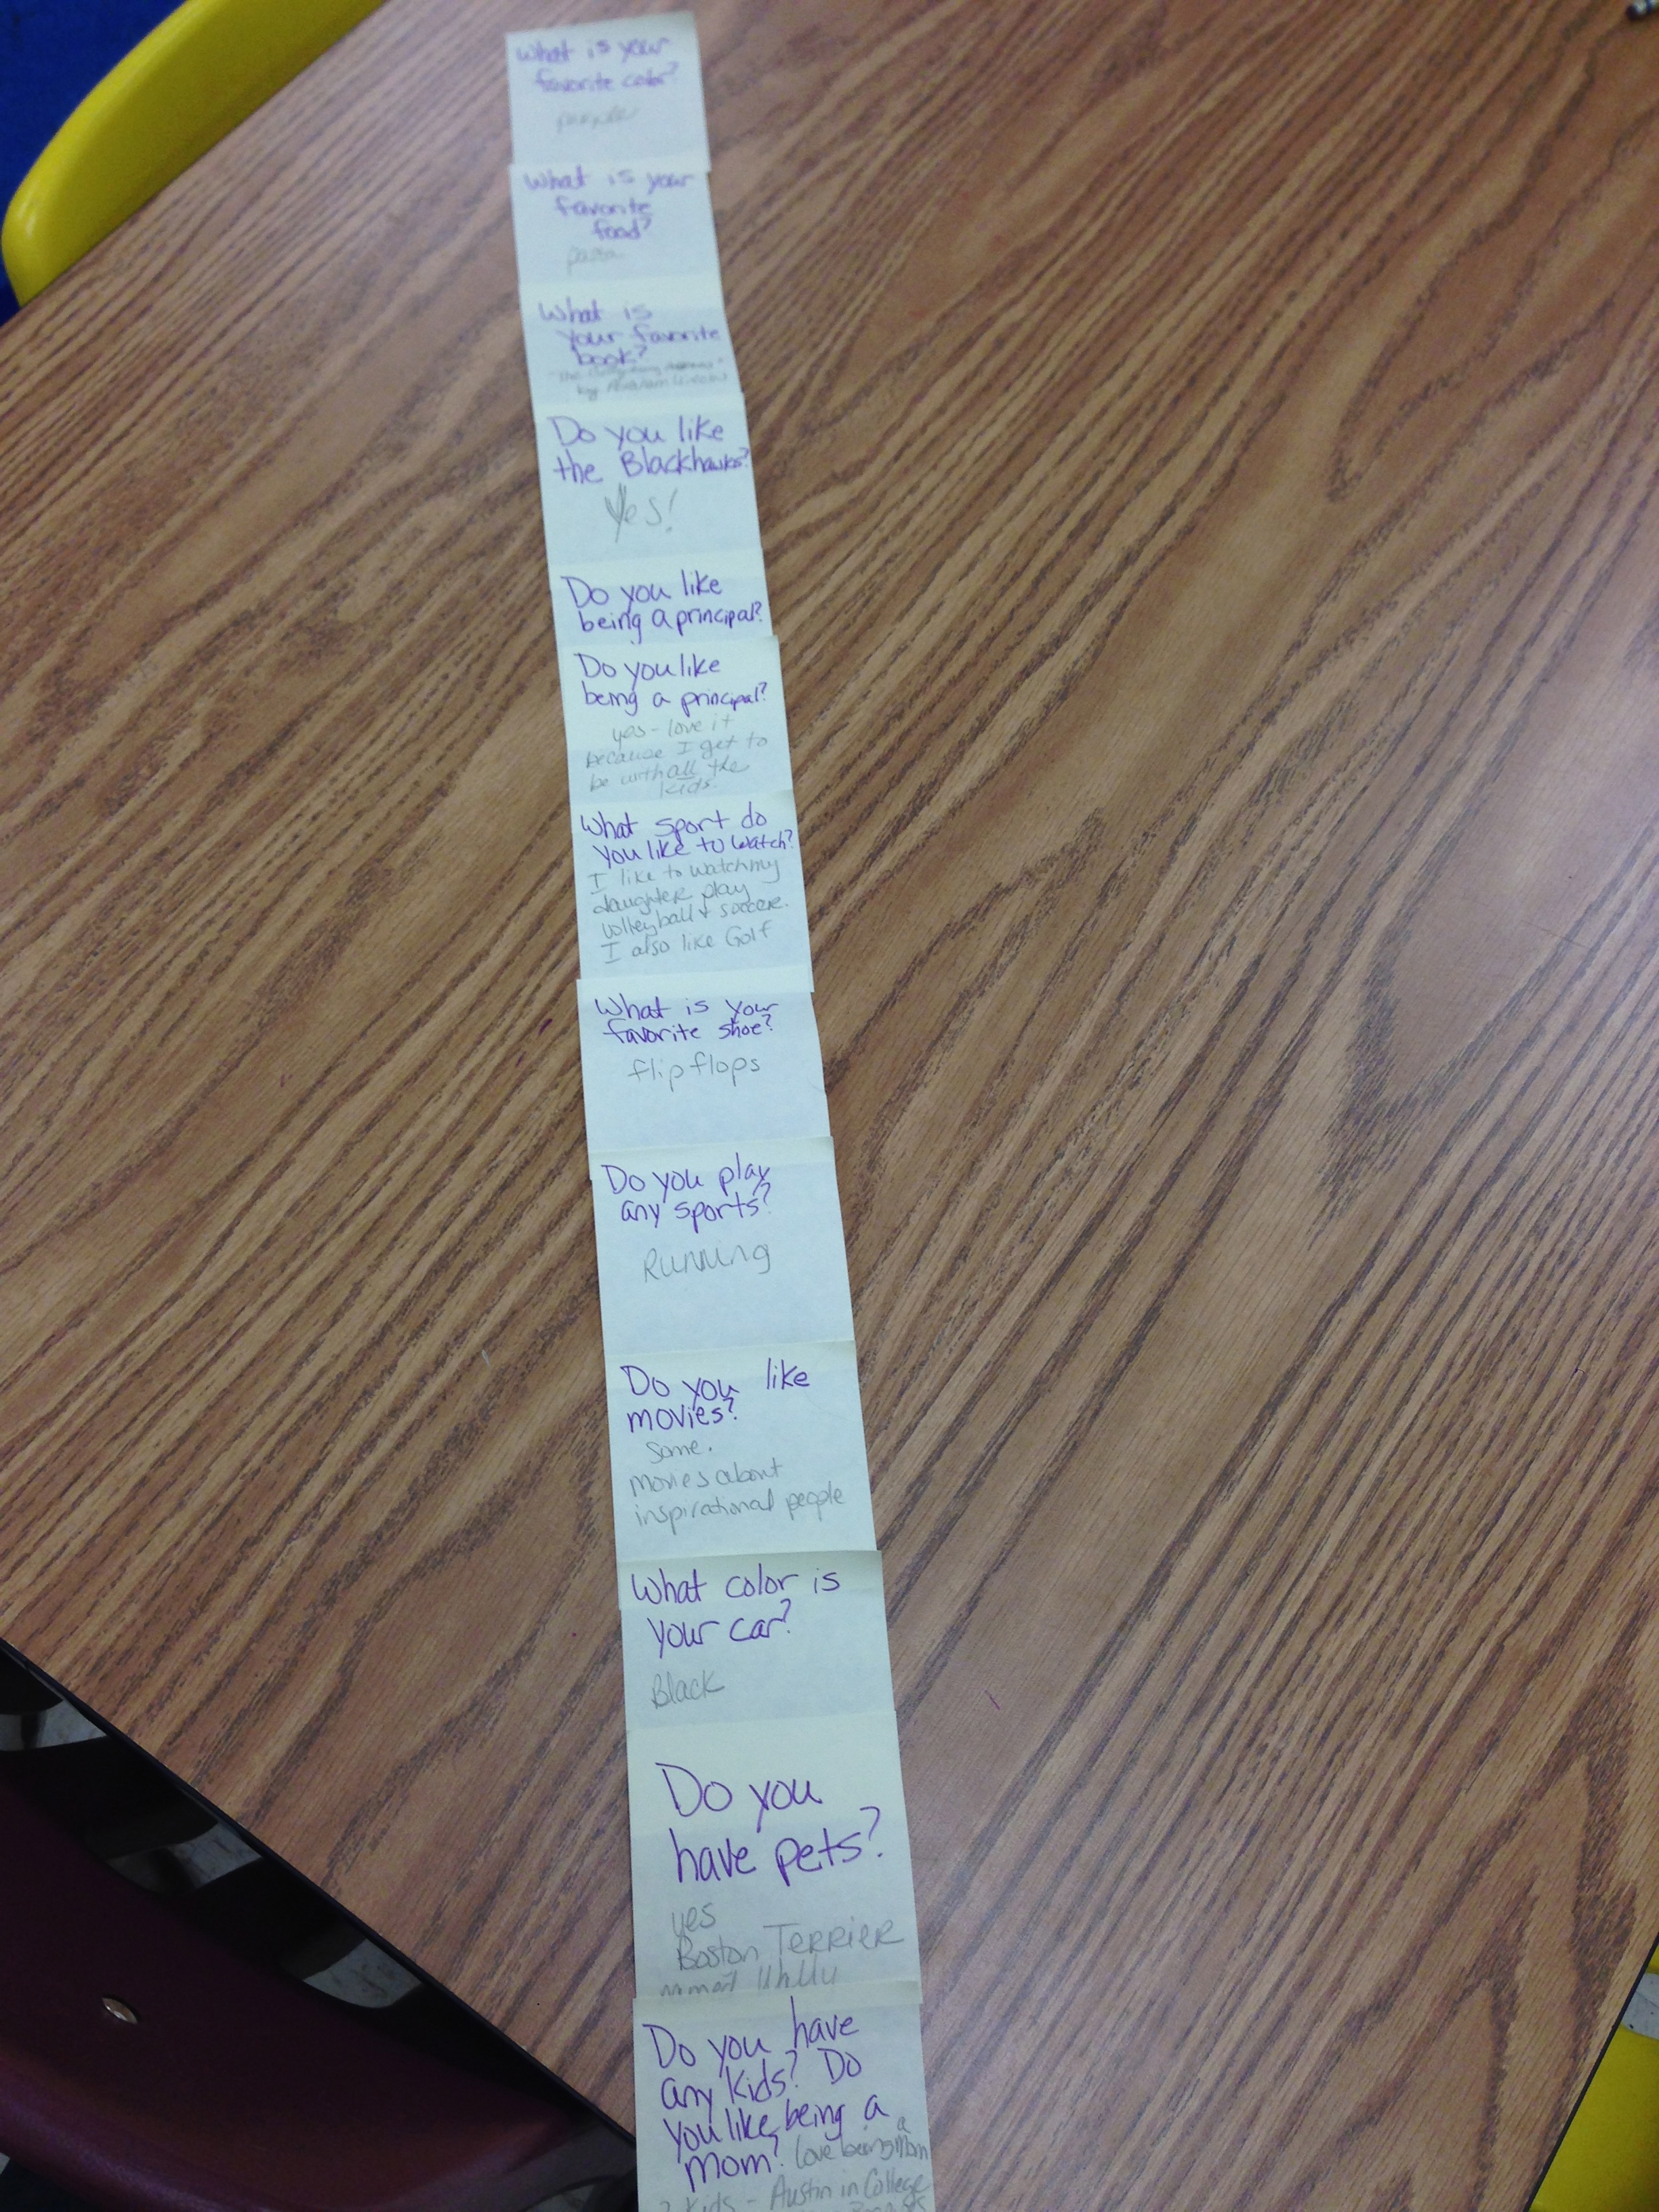 What is your
favorite color?
purple
What is your
favorite
food?
pasta
What is
your favorite
book?
"The
by Abraham Lincoln
Do you like
the Blackhawks?
Yes!
Do you like
being a principal?
Do you like
being a principal?
yes - love it
because I get to
be with all the
kids.
What sport do
you like to watch?
I like to watch my
daughter play
volleyball & soccer.
I also like Golf
What is your
favorite shoe?
flip flops
Do you play
any sports?
Running
Do you like
movies?
Some.
movies about
inspirational people
What color is
your car?
Black
Do you
have pets?
yes
Boston TERRIER
named
Do you have
any kids? Do
you like being a
mom? love being a Mom
Kids - Austin in College